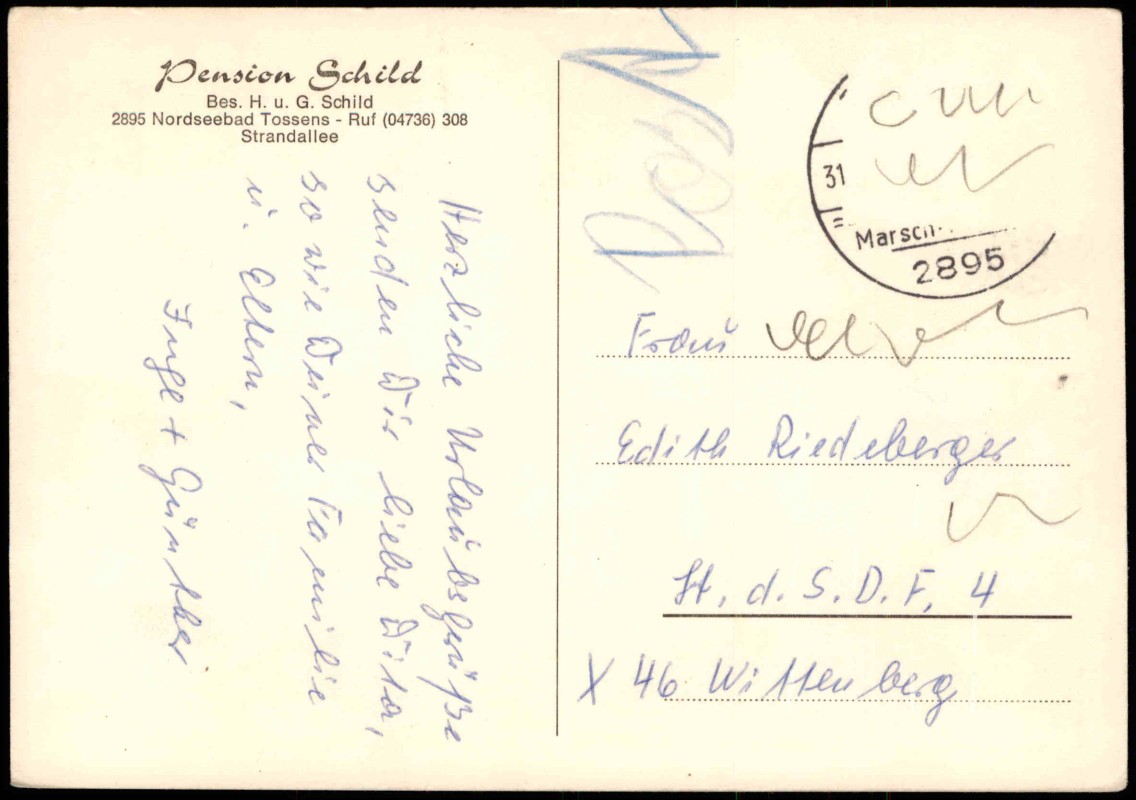 Pension Schild
Bes. H. u. G. Schild
2895 Nordseebad Tossens - Ruf (04736) 308
Strandallee
Herzliche Urlaubsgrüße
senden Dir liebe Dita,
so wie Deiner Familie
u. Eltern,
Inge + Günther
31
2895
Frau
Edith Riedeberger
St. d. S. D. F. 4
X 46 Wittenberg